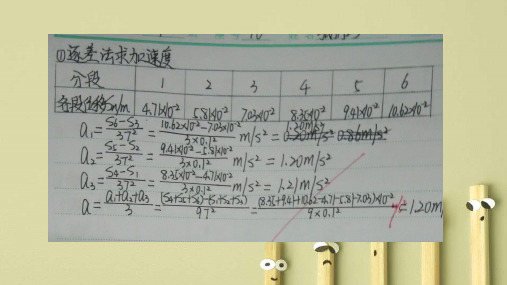 (1)逐差法求加速度
分段 1 2 3 4 5 6
各段位移Sn/m 4.71×10⁻² 5.81×10⁻² 7.03×10⁻² 8.35×10⁻² 9.41×10⁻² 10.62×10⁻²
a₁=(S6-S3)/3T²=(10.62×10⁻²-7.03×10⁻²)/(3×0.1²) m/s²=1.20m/s²
a₂=(S5-S2)/3T²=(9.41×10⁻²-5.81×10⁻²)/(3×0.1²) m/s²=1.20m/s²
a₃=(S4-S1)/3T²=(8.35×10⁻²-4.71×10⁻²)/(3×0.1²) m/s²=1.21m/s²
a=(a₁+a₂+a₃)/3=((S4+S5+S6)-(S1+S2+S3))/9T²=(8.35+9.41+10.62-4.71-5.81-7.03)×10⁻²/(9×0.1²)=1.20m